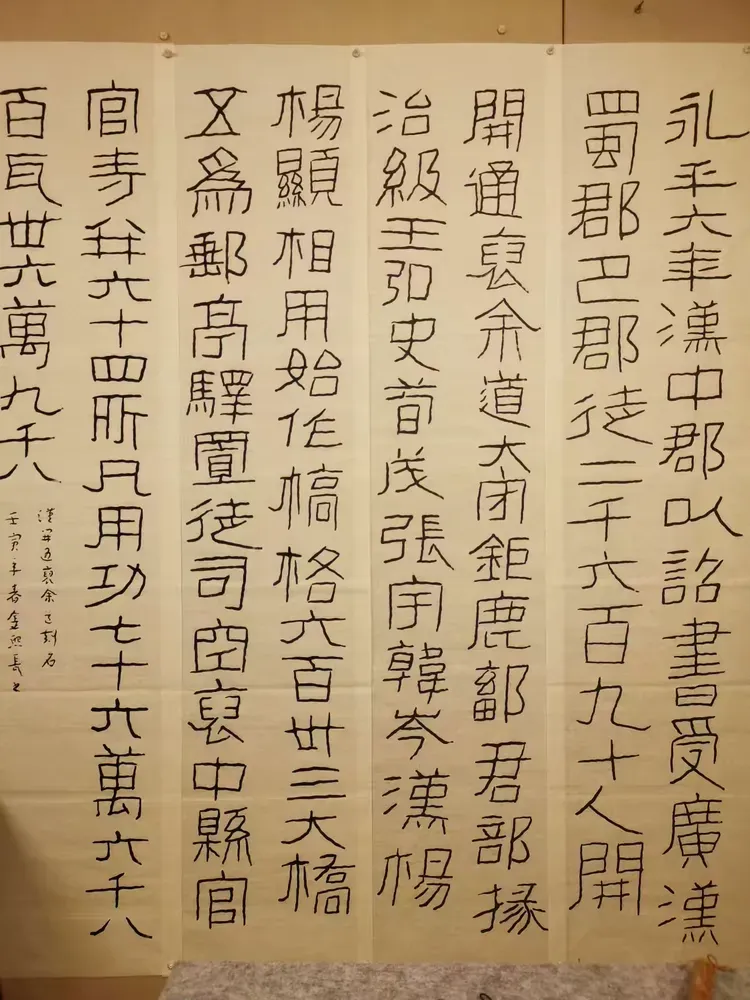 永平六年漢中郡以詔書受廣漢
蜀郡巴郡徒二千六百九十人開
開通褒余道大守鉅鹿鄐君部掾
治級王弘史荀茂張宇韓岑漢楊
楊顯相用始作橋格六百卅三大橋
五爲郵亭驛置徒司空褒中縣官
官寺并六十四所凡用功七十六萬六千八
百瓦卅六萬九千八
漢開通褒余道刻石
壬寅年春金熙長